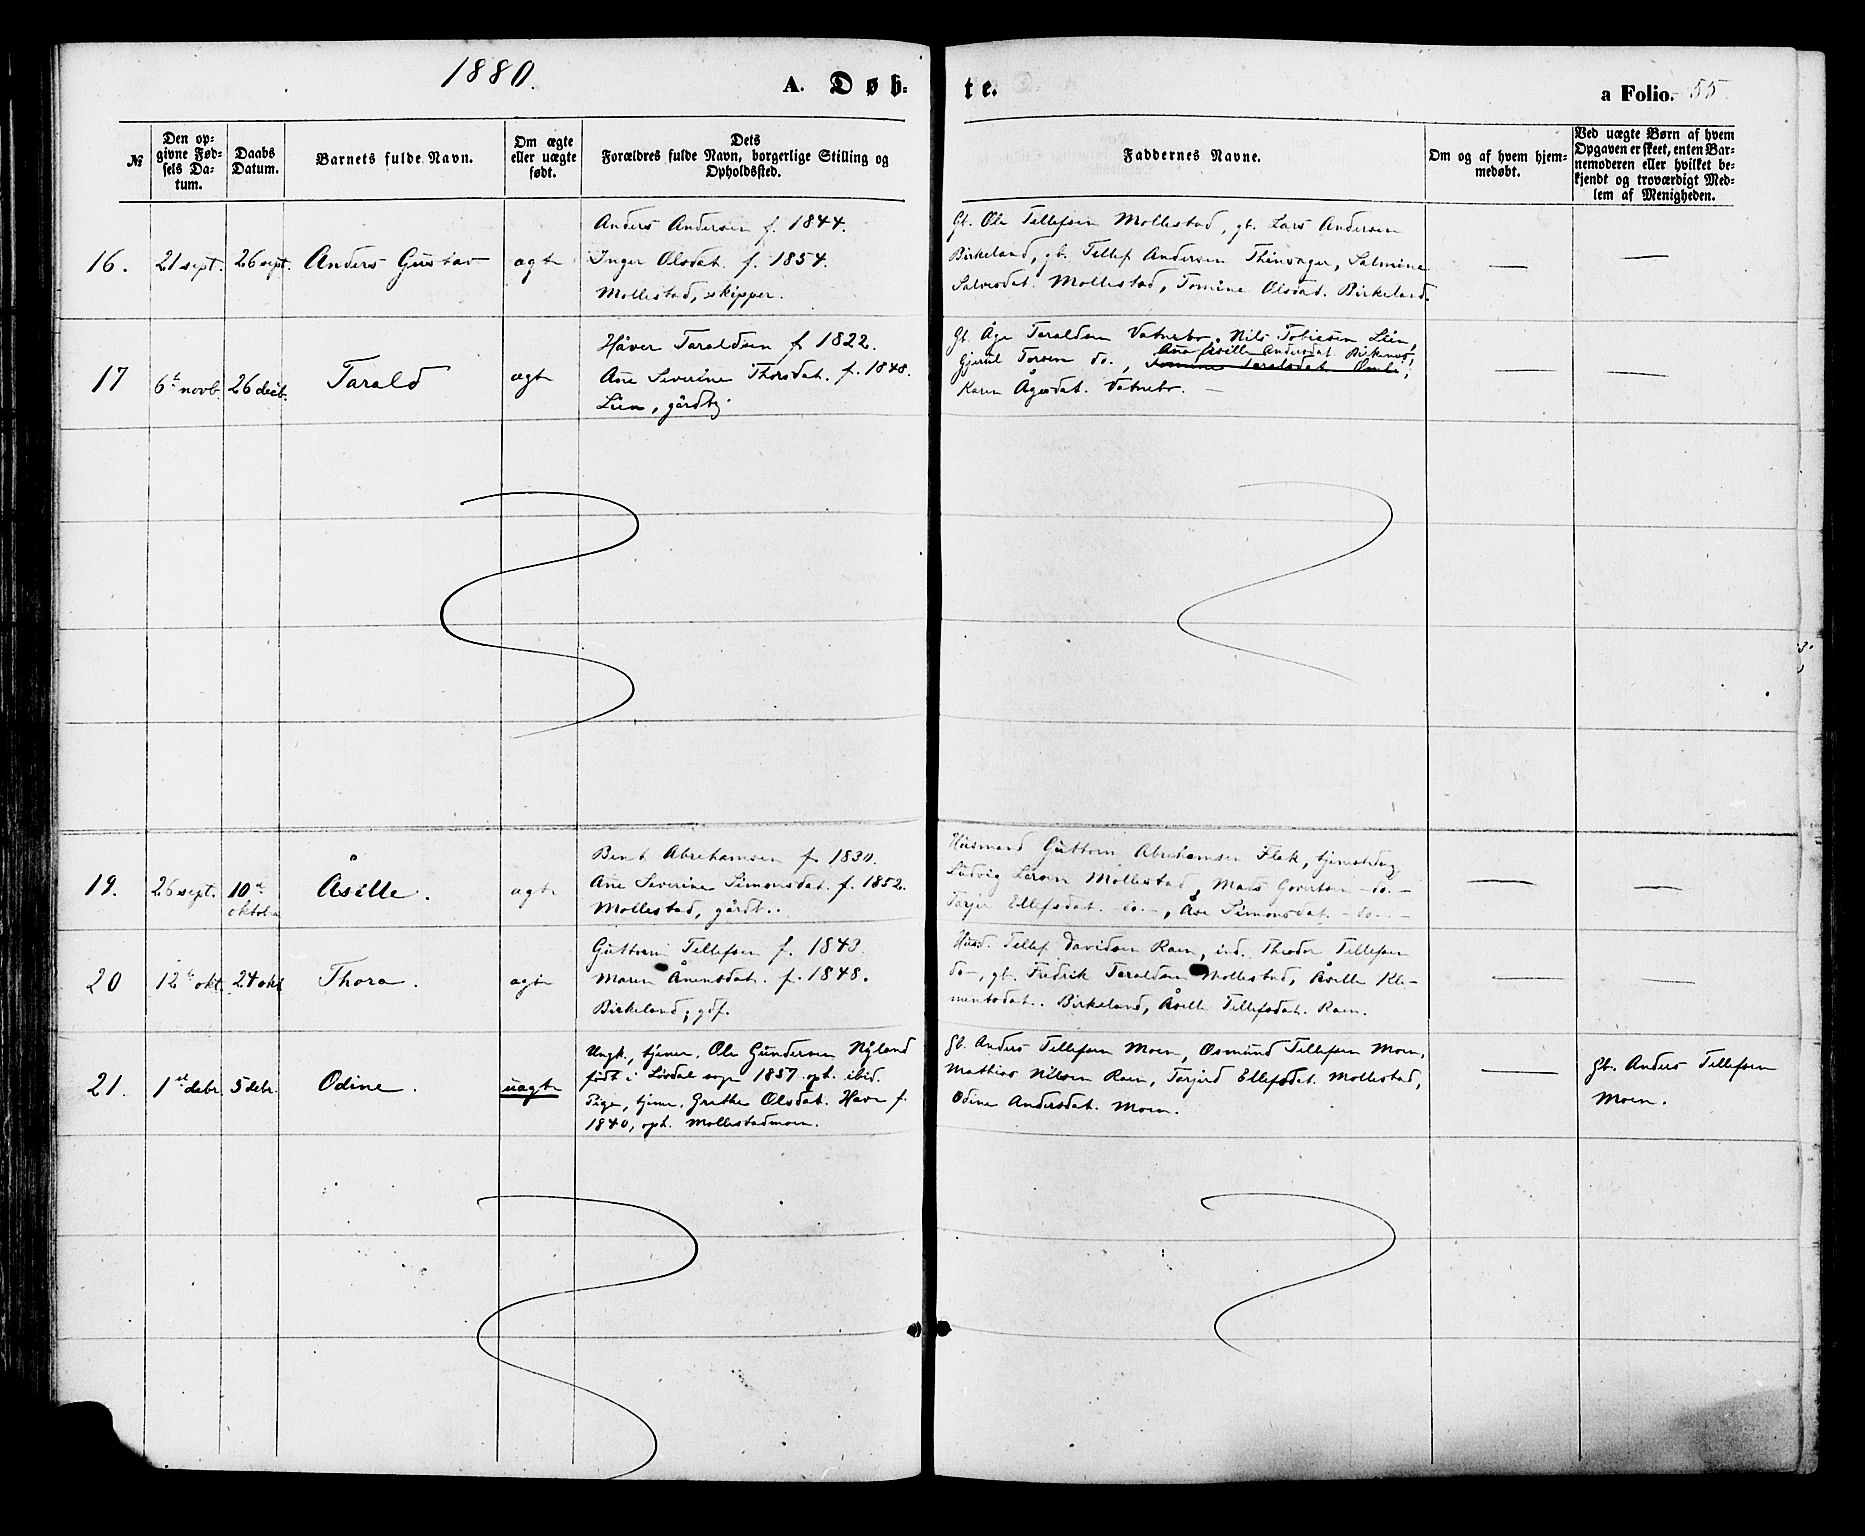 1880.
A. D ø b-
t e.
a Folio. 55
№
Den op-
givne Fød-
sels Da-
tum.
Daabs
Datum.
Barnets fulde Navn.
Om ægte
eller uægte
født.
Dets
Forældres fulde Navn, borgerlige Stilling og
Opholdssted.
Faddernes Navne.
Om og af hvem hjem-
medøbt.
Ved uægte Børn af hvem
Opgaven er skeet, enten Bar-
nemoderen eller hvilket be-
kjendt og troværdigt Med-
lem af Menigheden.
16.
21 sept.
26 sept.
Anders Gustav
ægte
Anders Andersen f. 1844.
Inger Olsdat. f. 1854.
Mollestad, skipper.
Gb. Ole Tellefsen Mollestad, gb. Lars Andersen
Birkeland, gb. Tellef Andersen, Salmine
Salvesdat. Mollestad, Tomine Olsdat. Birkeland.
—
—
17
6te novb.
26 decb.
Tarald
ægte
Håver Taraldsen f. 1822.
Ane Severine Thorsdat. f. 1848.
Lien, gårdbr.
Gb. Åge Taraldsen Vatnebo, Nils Tobiasen Lien,
Ana Åsille Andersdat.
Gjerul Torsen do., Tomine Taraldsdat.
Karen Ågesdat. Vatnebo. —
—
—
19.
26 sept.
10de
oktober
Åsille.
ægte
Bent Abrahamsen f. 1830.
Ane Severine Simonsdat. f. 1852.
Mollestad, gårdb..
Husmand Guttorm Abrahamsen Flak, tjenestdrg
Ludvig Larsen Mollestad, Mads Govertsen — do. —
Torjer Ellefsdat. do —, Åse Simonsdat. — do. —
—
—
20
12te okt.
24 okt
Thora.
ægte
Guttorm Tellefsen f. 1843.
MarenÅnensdat. f. 1848.
Birkeland, gdf.
Husd. Tellef Davidsen Raen, ind. Theodor Tellefsen
do —, gb. Fredrik Taraldsen Mollestad, Åsille Kle-
mentsdat.. Birkeland, Åsille Tellefsdat. Raen.
—
—
21.
1ste debr.
5 debr.
Odine.
uægte
Ungk., tjener, Ole Gundersen Nyland
født i Livdal sogn 1857 oph. ibid.
Pige, tjene. Grethe Olsdat. Have f.
1840, oph. Mollestadmoen.
gb. Anders Tellefsen Moen, Osmund Tellefsen Moen,
Mathias Nilsen Raen, Torjerd Ellefsdat. Mollestad,
Odine Andersdat. Moen.
—
Gb. Anders Tellefsen
Moen.